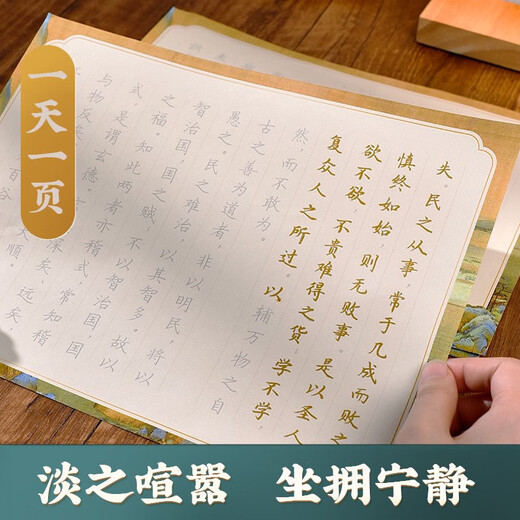 一天一页
失。民之从事，常于几成而败之
慎终如始，则无败事。是以圣人
欲不欲，不贵难得之货；学不学，
复众人之所过。以辅万物之自
然，而不敢为。
古之善为道者，非以明民，将以
愚之。民之难治，以其智多。故以
智治国，国之贼；不以智治国，国
之福。知此两者亦稽式。常知稽
式，是谓玄德。
深矣、远矣，
与物反矣
大顺。
淡之喧嚣 坐拥宁静